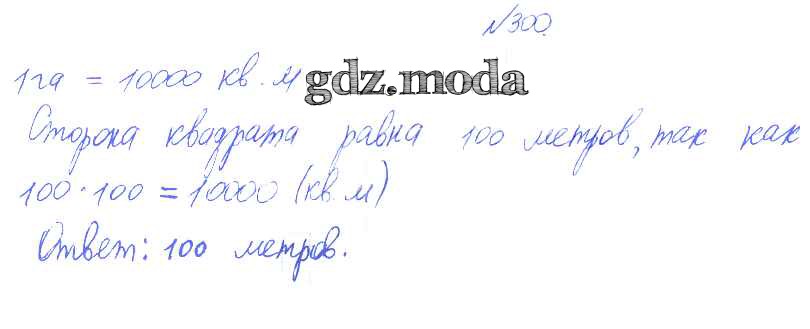 №300.
1га = 10000 кв.м gdz.moda
Сторона квадрата равна 100 метров, так как
100·100 = 10000 (кв.м)
Ответ: 100 метров.